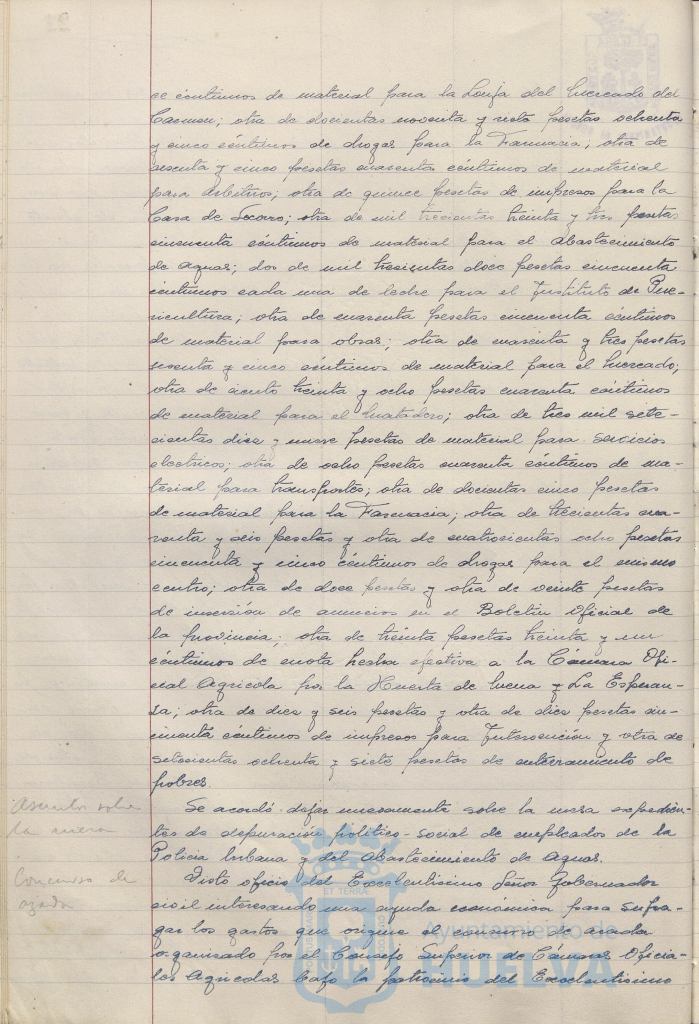 ce céntimos de material para la Lonja del Mercado del
Carmen; otra de doscientas noventa y siete pesetas ochenta
y cinco céntimos de drogas para la Farmacia; otra de
sesenta y cinco pesetas cuarenta céntimos de material
para Arbitrios; otra de quince pesetas de impresos para la
Casa de Socorro; otra de mil trescientas treinta y tres pesetas
cincuenta céntimos de material para el Abastecimiento
de Aguas; dos de mil trescientas doce pesetas cincuenta
céntimos cada una de leche para el Instituto de Pue-
ricultura; otra de cuarenta pesetas cincuenta céntimos
de material para obras; otra de cuarenta y tres pesetas
sesenta y cinco céntimos de material para el Mercado;
otra de ciento treinta y ocho pesetas cuarenta céntimos
de material para el Matadero; otra de tres mil sete-
cientas diez y nueve pesetas de material para servicios
electricos; otra de ocho pesetas cuarenta céntimos de ma-
terial para transportes; otra de docientas cinco pesetas
de material para la Farmacia; otra de trecientas cua-
renta y seis pesetas y otra de cuatrocientas ocho pesetas
cincuenta y cinco céntimos de drogas para el mismo
centro; otra de doce pesetas y otra de veinte pesetas
de inserción de anuncios en el Boletin Oficial de
la provincia; otra de treinta pesetas treinta y un
céntimos de cuota hecha efectiva a la Cámara Ofi-
cial Agricola por la Huerta de Mena y La Esperan-
za; otra de diez y seis pesetas y otra de diez pesetas cin-
cuenta céntimos de impresos para Intervención y otra de
setecientas ochenta y siete pesetas de enterramiento de
pobres.
Asuntos sobre
la mesa
Se acordó dejar nuevamente sobre la mesa expedien-
tes de depuración politico-social de empleados de la
Policia Urbana y del Abastecimiento de Aguas.
Concurso de
azada
Visto oficio del Excelentisimo Señor Gobernador
civil interesando una ayuda económica para sufra-
gar los gastos que origine el concurso de azada
organizado por el Consejo Superior de Cámaras Oficia-
les Agricolas bajo la patrocinio del Excelentisimo
Ayuntamiento de
HUELVA